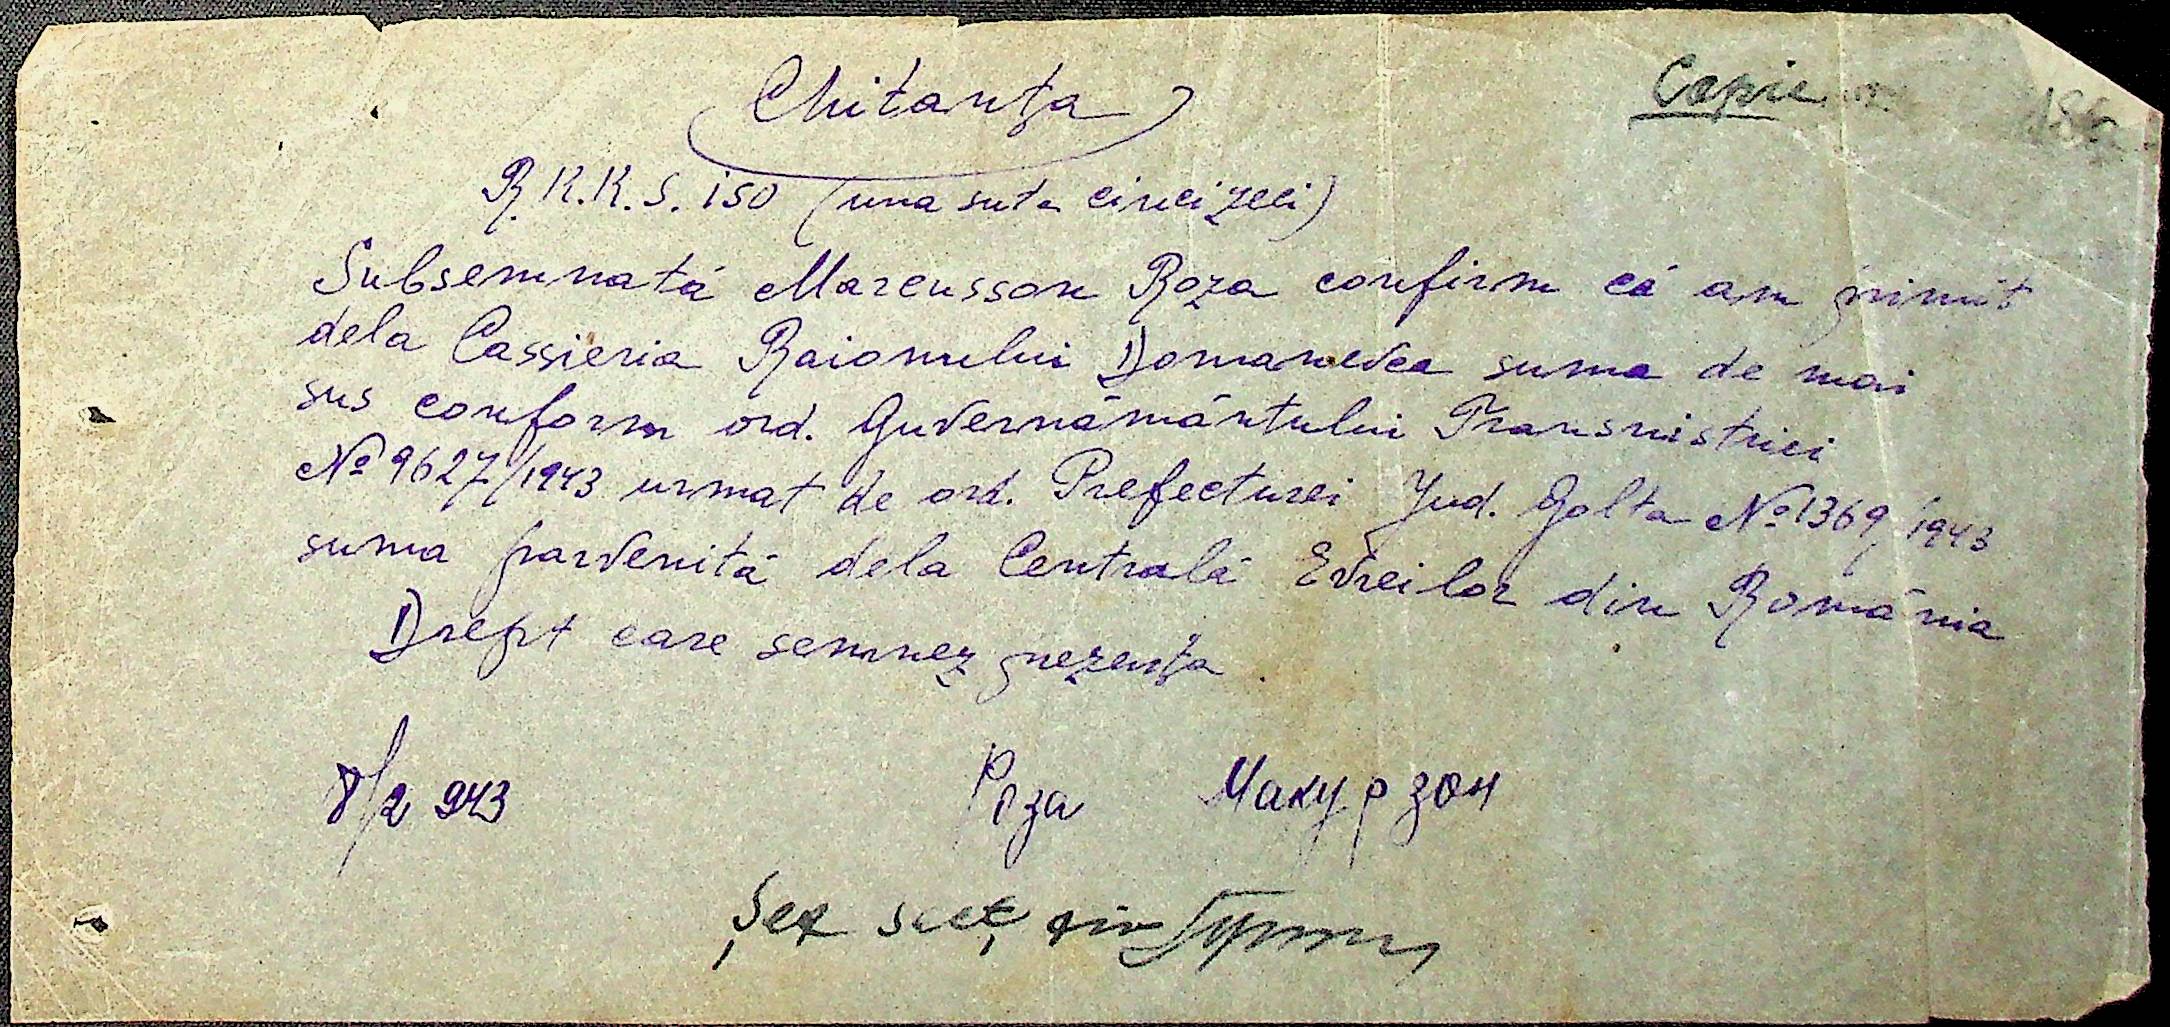 Chitanța
Copie
R.K.K.S. 150 (una suta cincizeci)
Subsemnată Marcusson Roza confirm că am primit
dela Cassieria Raionului Domanevca suma de mai
sus conform ord. Guvernământului Transnistriei
№ 9627/1943 urmat de ord. Prefecturei Jud. Golta № 1369/1943
suma parvenită dela Centrală Evreilor din România
Drept care semnez prezenta
8/2 943 Роза Макурзон
Șef secț